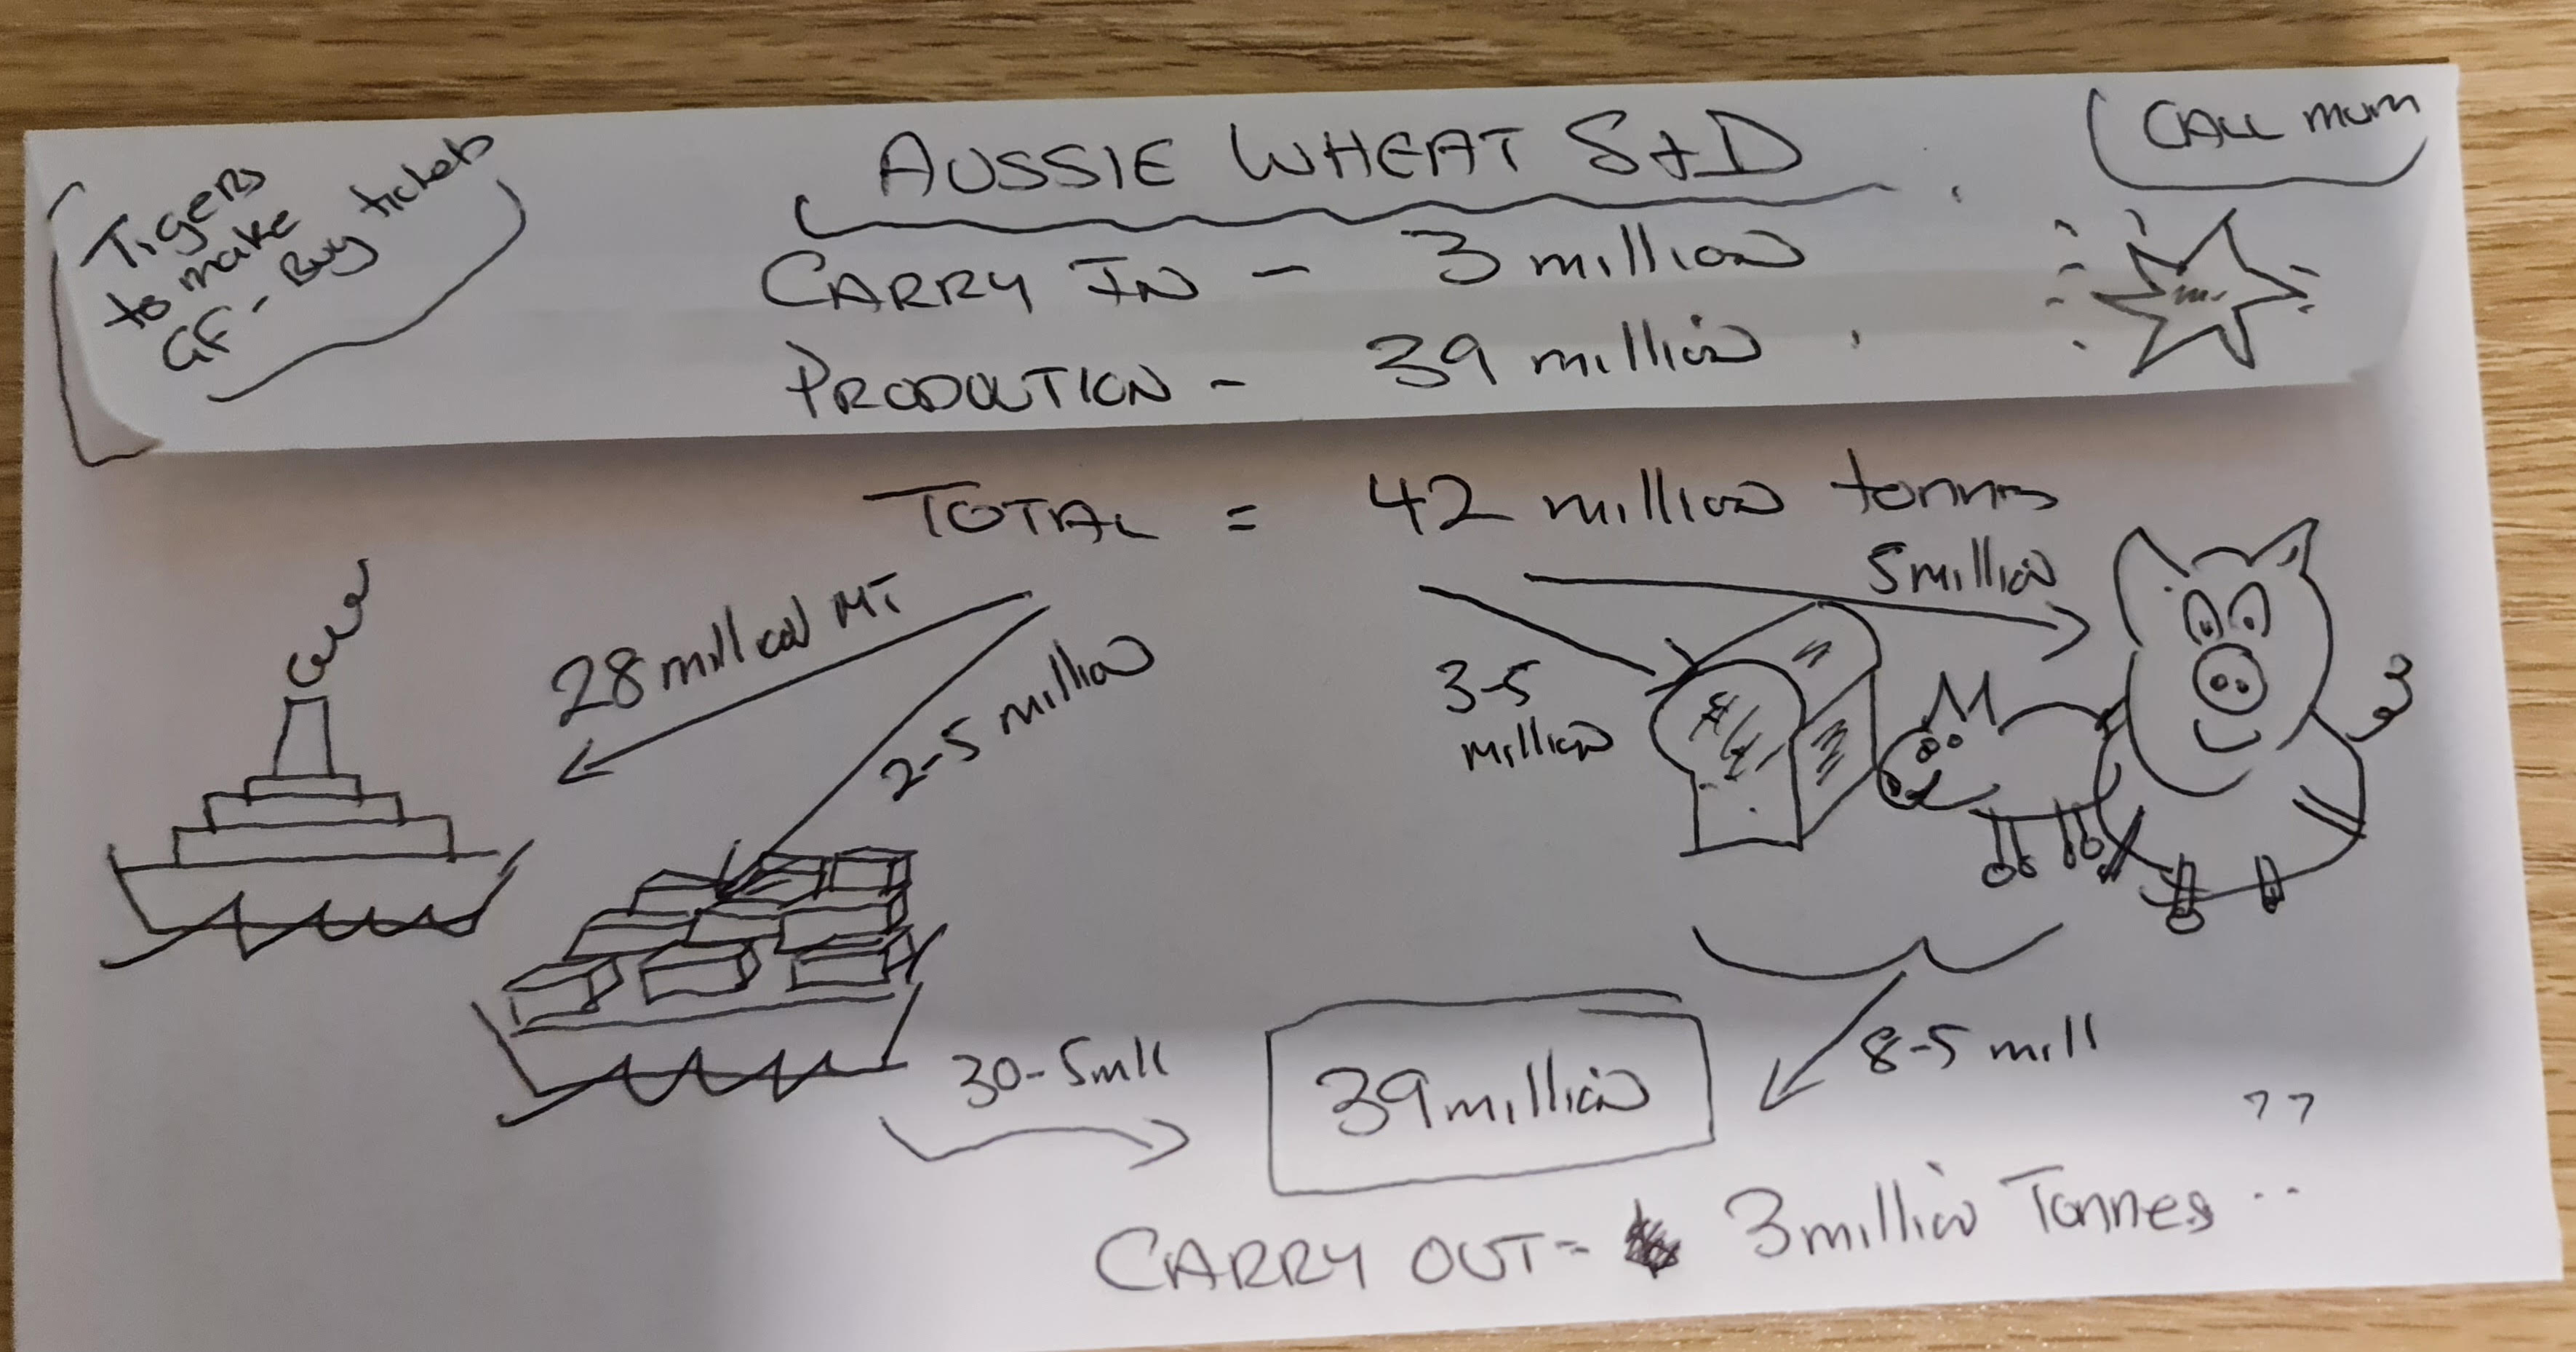 Tigers
to make
GF - Buy tickets
AUSSIE WHEAT S+D
CALL mum
CARRY IN - 3 million
PRODUCTION - 39 million
TOTAL = 42 million tonnes
28 million MT
2-5 million
3-5
million
5 million
30-5 mill
39 million
8-5 mill
??
CARRY OUT = 3 million Tonnes